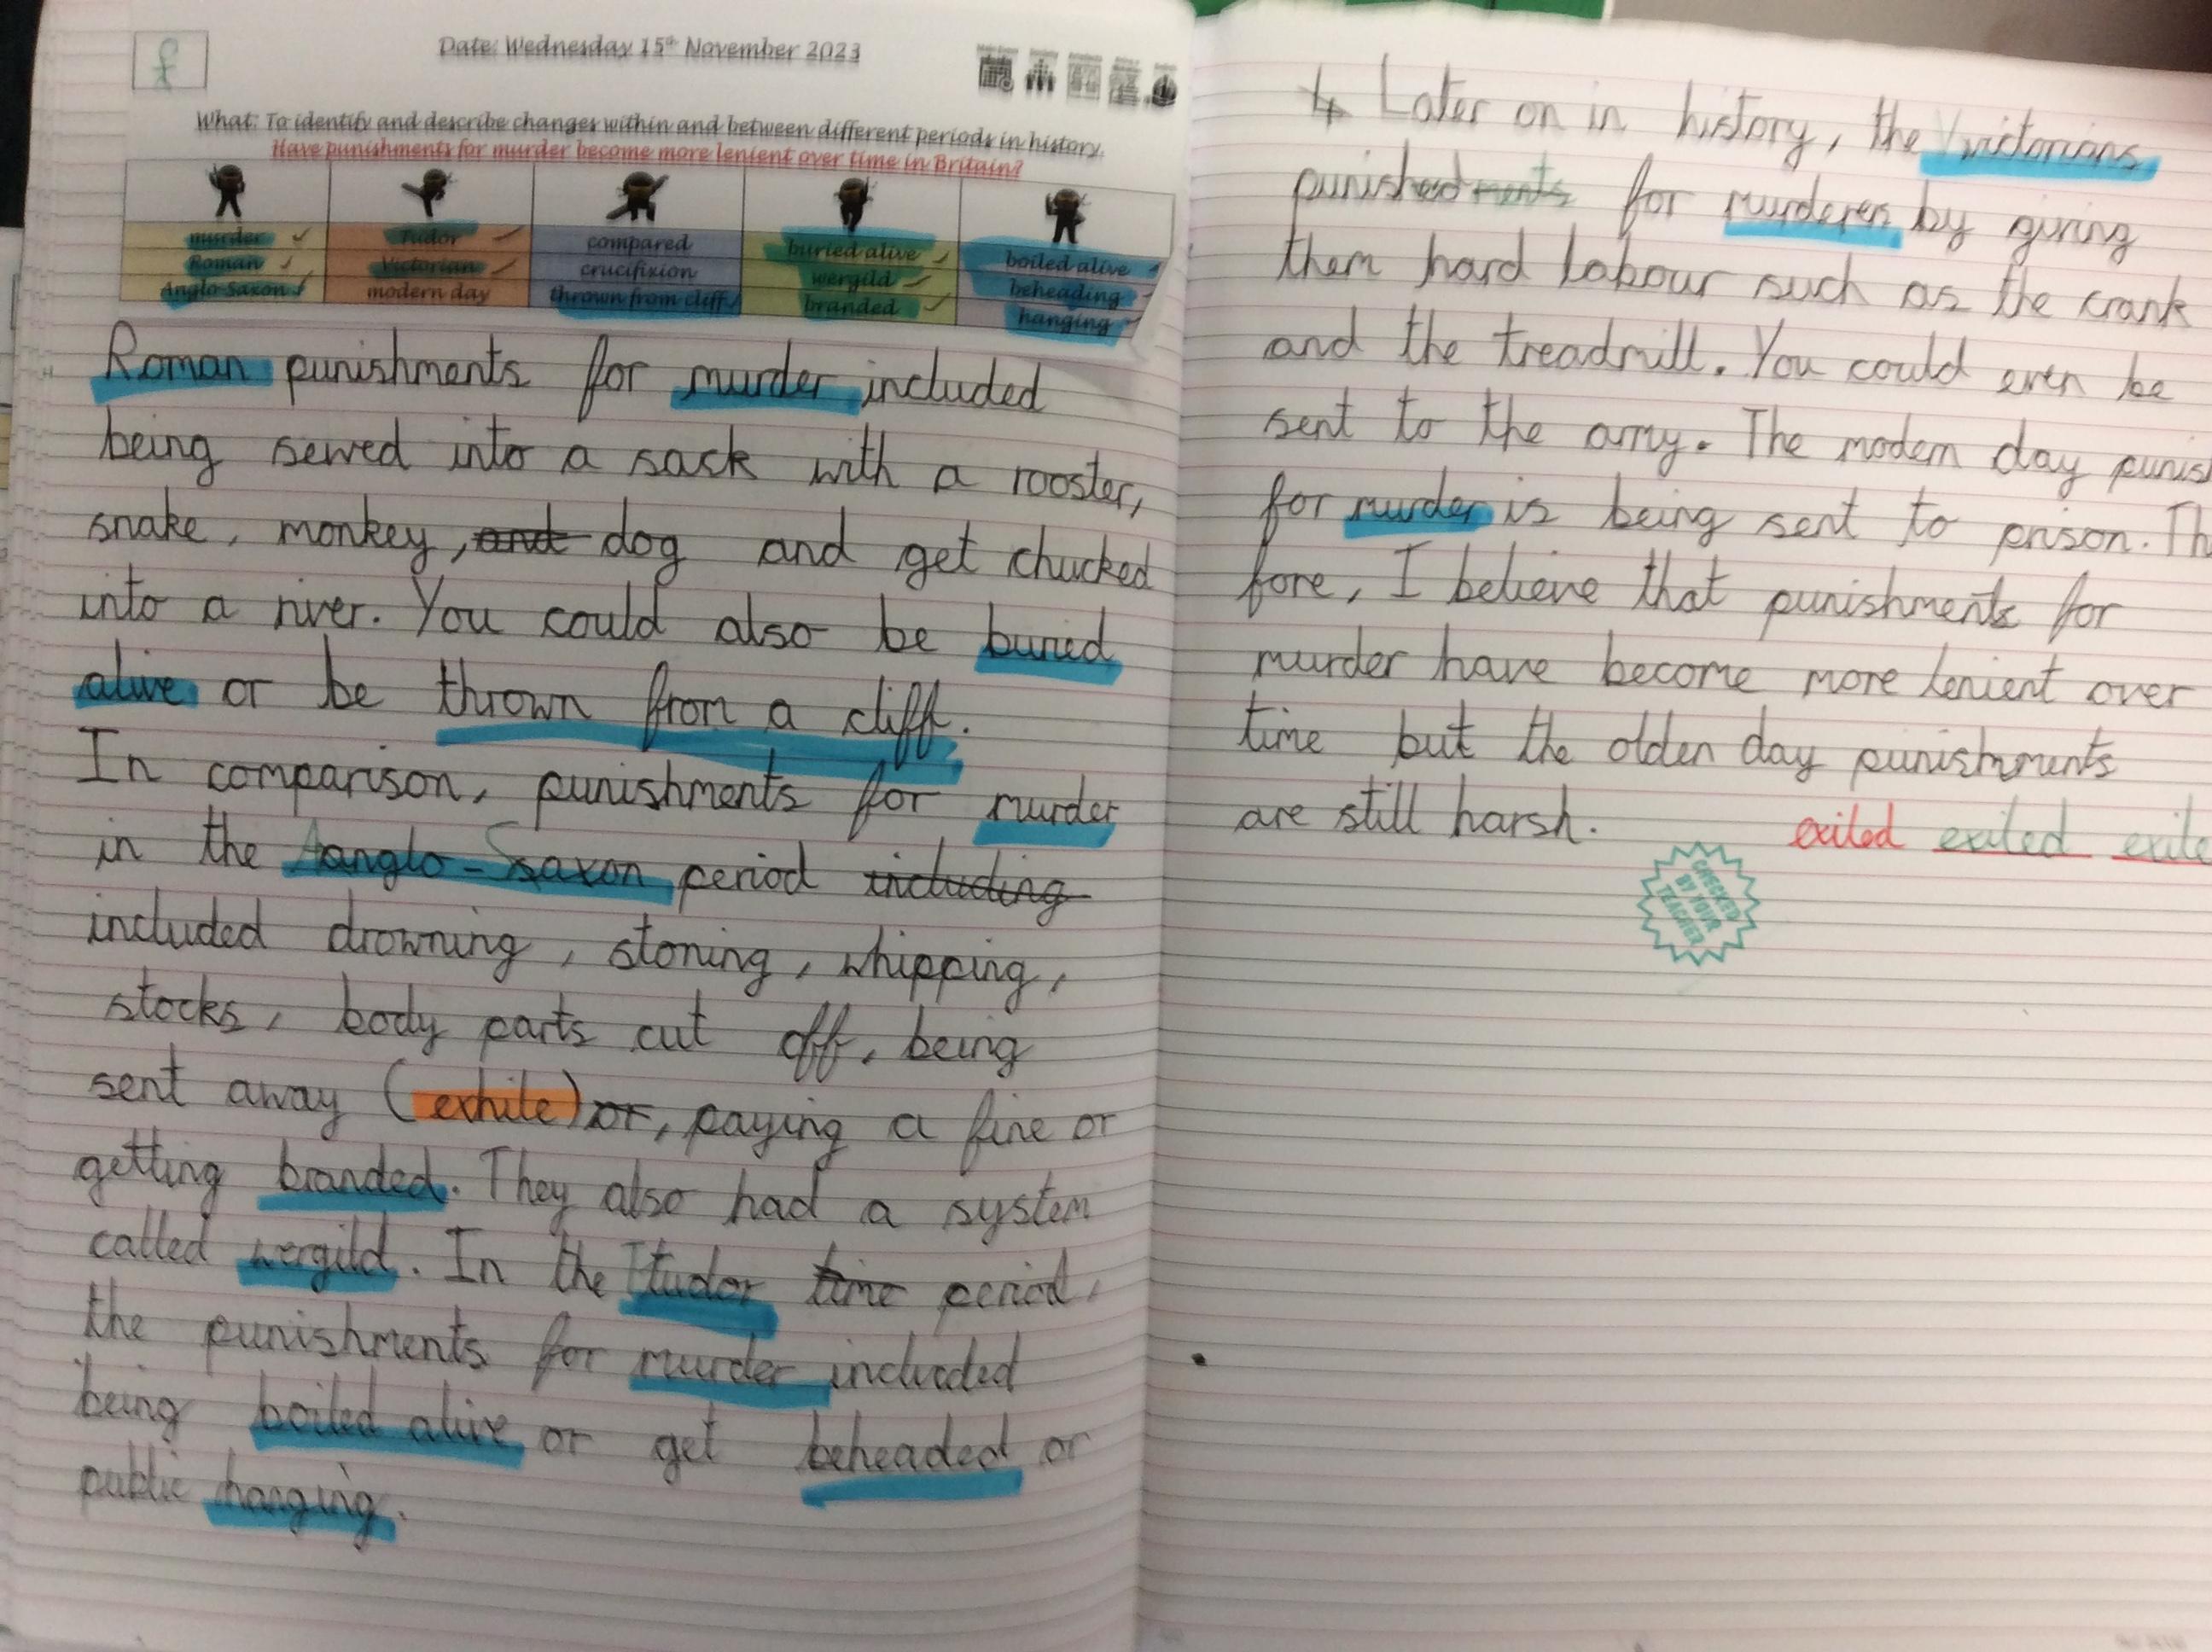 Date: Wednesday 15th November 2023
What: To identify and describe changes within and between different periods in history.
Have punishments for murder become more lenient over time in Britain?
murder Tudor compared buried alive boiled alive
Roman Victorian crucifixion wergild beheading
Anglo-Saxon modern day thrown from cliff branded hanging
Roman punishments for murder included
being sewed into a sack with a rooster,
snake, monkey, and dog and get chucked
into a river. You could also be buried
alive or be thrown from a cliff.
In comparison, punishments for murder
in the Aanglo-Ssaxon period including
included drowning, stoning, whipping,
stocks, body parts cut off, being
sent away (exhile) or, paying a fine or
getting branded. They also had a system
called wergild. In the Ttudor time period,
the punishments for murder included
being boiled alive or get beheaded or
public hanging.
Later on in history, the Vvictorians
punished for murderers by giving
them hard labour such as the crank
and the treadmill. You could even be
sent to the army. The modern day punis
for murder is being sent to prison. Th
fore, I believe that punishments for
murder have become more lenient over
time but the olden day punishments
are still harsh.
exiled exiled exile
CHECKED
BY YOUR
TEACHER